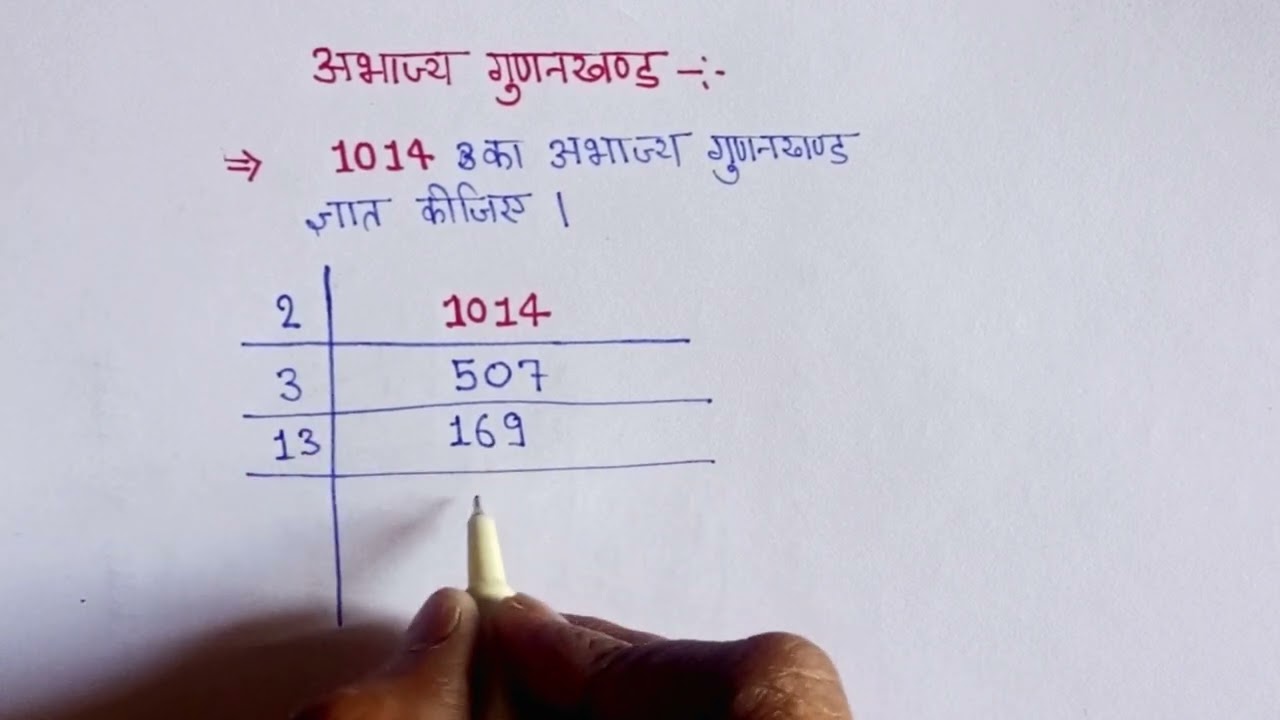 अभाज्य गुणनखण्ड -:-
⇒ 1014 का अभाज्य गुणनखण्ड
ज्ञात कीजिए ।
2 1014
3 507
13 169